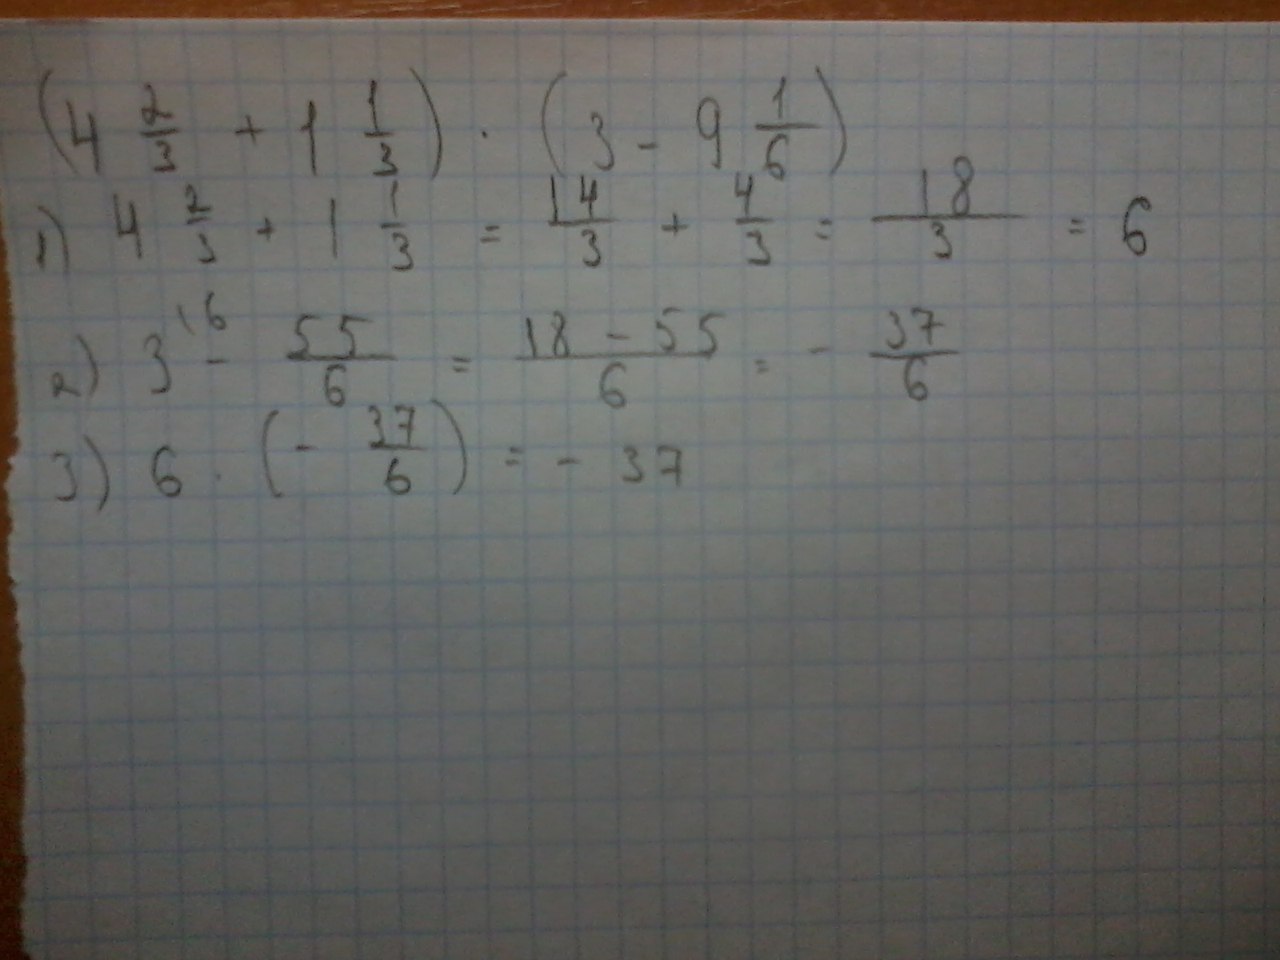 (4 2/3 + 1 1/3) · (3 - 9 1/6)
1) 4 2/3 + 1 1/3 = 14/3 + 4/3 = 18/3 = 6
2) 3 \6 - 55/6 = 18 - 55/6 = - 37/6
3) 6 · (- 37/6) = - 37